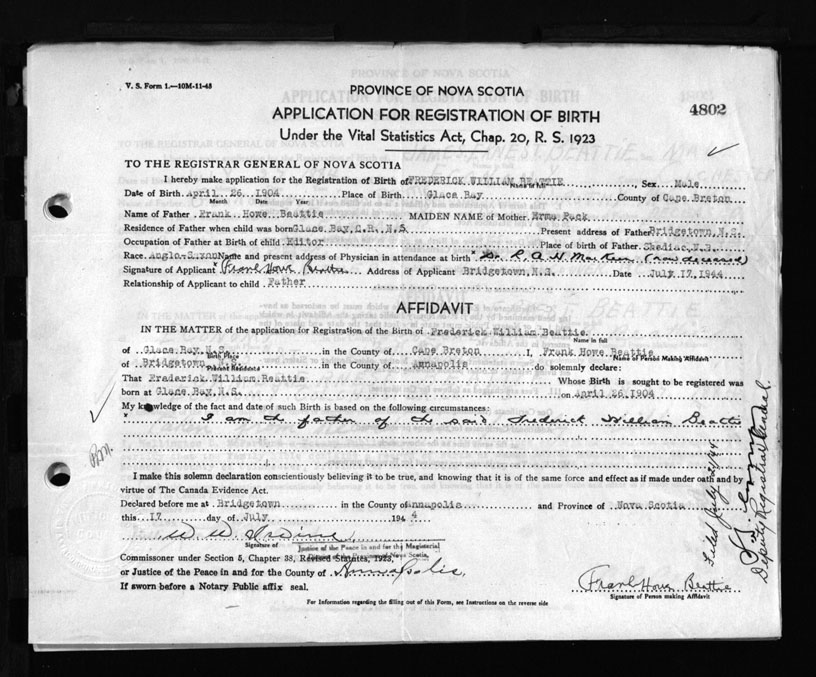 V. S. Form 1.—10M-11-43
PROVINCE OF NOVA SCOTIA
4802
APPLICATION FOR REGISTRATION OF BIRTH
Under the Vital Statistics Act, Chap. 20, R. S. 1923
TO THE REGISTRAR GENERAL OF NOVA SCOTIA
I hereby make application for the Registration of Birth of FREDERICK WILLIAM BEATTIE Sex Male
Name in full
Date of Birth April 26 1904 Place of Birth Glace Bay County of Cape Breton
Month Date Year
Name of Father Frank Howe Beattie MAIDEN NAME of Mother
Residence of Father when child was born Glace Bay, C.B. N.S Present address of Father Bridgetown, N.S.
Occupation of Father at Birth of child Editor Place of birth of Father Shediac, N.B.
Race Name and present address of Physician in attendance at birth Dr. (now deceased)
Signature of Applicant Frank Howe Beattie Address of Applicant Bridgetown, N.S. Date July 17, 1944
Relationship of Applicant to child Father
AFFIDAVIT
IN THE MATTER of the application for Registration of the Birth of Frederick William Beattie
Name in full
of Glace Bay, N.S. in the County of Cape Breton I, Frank Howe Beattie
Birth Place Name of Person Making Affidavit
of Bridgetown in the County of Annapolis do solemnly declare:
Present Residence
That Frederick William Beattie Whose Birth is sought to be registered was
born at Glace Bay, N.S. on April 26 1904
My knowledge of the fact and date of such Birth is based on the following circumstances:
I am the father of the said Frederick William Beattie
I make this solemn declaration conscientiously believing it to be true, and knowing that it is of the same force and effect as if made under oath and by
virtue of The Canada Evidence Act.
Declared before me at Bridgetown in the County of Annapolis and Province of Nova Scotia
this 17 day of July 1944
Signature of Justice of the Peace in and for the Magisterial
Commissioner under Section 5, Chapter 38, Revised Statutes, 1923,
or Justice of the Peace in and for the County of Annapolis.
If sworn before a Notary Public affix seal.
Frank Howe Beattie
Signature of Person making Affidavit
For Information regarding the filling out of this Form, see Instructions on the reverse side
Filed July 21/44
Deputy Registrar General